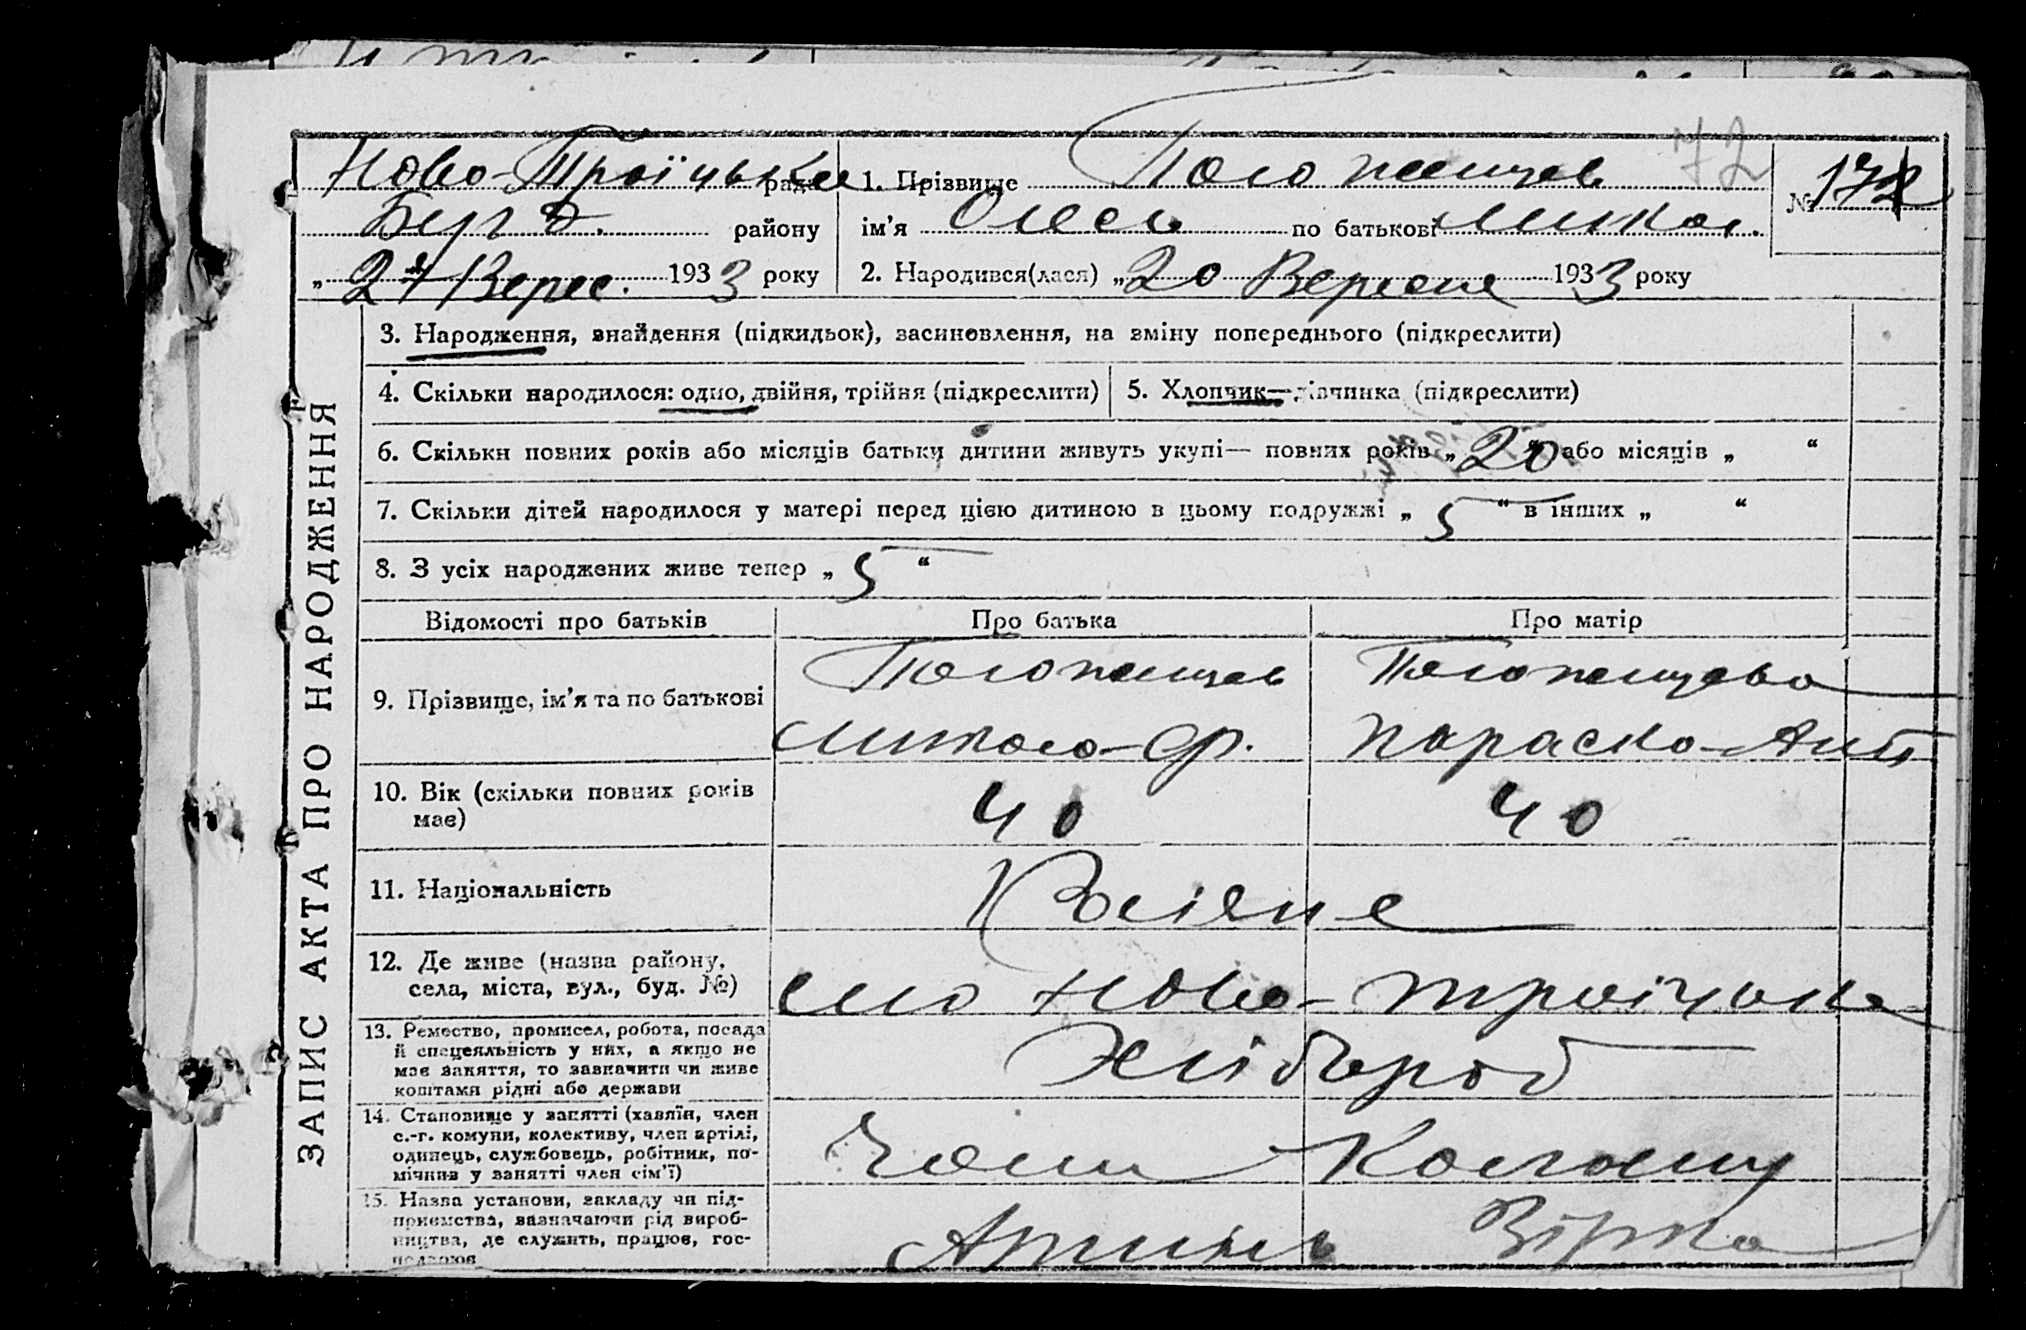 Ново-Троїцька рада
Берд. району
„ 27 Верес. 1933 року
1. Прізвище
ім’я Олесь по батькові Микол.
2. Народився(лася) „ 20 Вересня 1933 року
72
№ 172
ЗАПИС АКТА ПРО НАРОДЖЕННЯ
3. Народження, знайдення (підкидьок), засиновлення, на зміну попереднього (підкреслити)
4. Скільки народилося: одно, двійня, трійня (підкреслити)
5. Хлопчик—дівчинка (підкреслити)
6. Скільки повних років або місяців батьки дитини живуть укупі— повних років „ 20 “ або місяців „ “
7. Скільки дітей народилося у матері перед цією дитиною в цьому подружжі „ 5 “ в інших „ “
8. З усіх народжених живе тепер „ 5 “
Відомості про батьків Про батька Про матір
9. Прізвище, ім’я та по батькові
Микола Ф. Параска Ант
10. Вік (скільки повних років
має)
40 40
11. Національність
Росіяне
12. Де живе (назва району,
села, міста, вул., буд. №)
село Ново-Троїцька
13. Ремество, промисел, робота, посада
й спецеяльність у них, а якщо не
має заняття, то зазначити чи живе
коштами рідні або держави
Хлібороб
14. Становище у занятті (хазяїн, член
с.-г. комуни, колективу, член артілі,
одинець, службовець, робітник, по-
мічник у занятті член сім’ї)
Член Колгоспу
15. Назва установи, закладу чи під-
приємства, зазначаючи рід вироб-
ництва, де служить, працює, гос-
подарює
Артіль Зірка